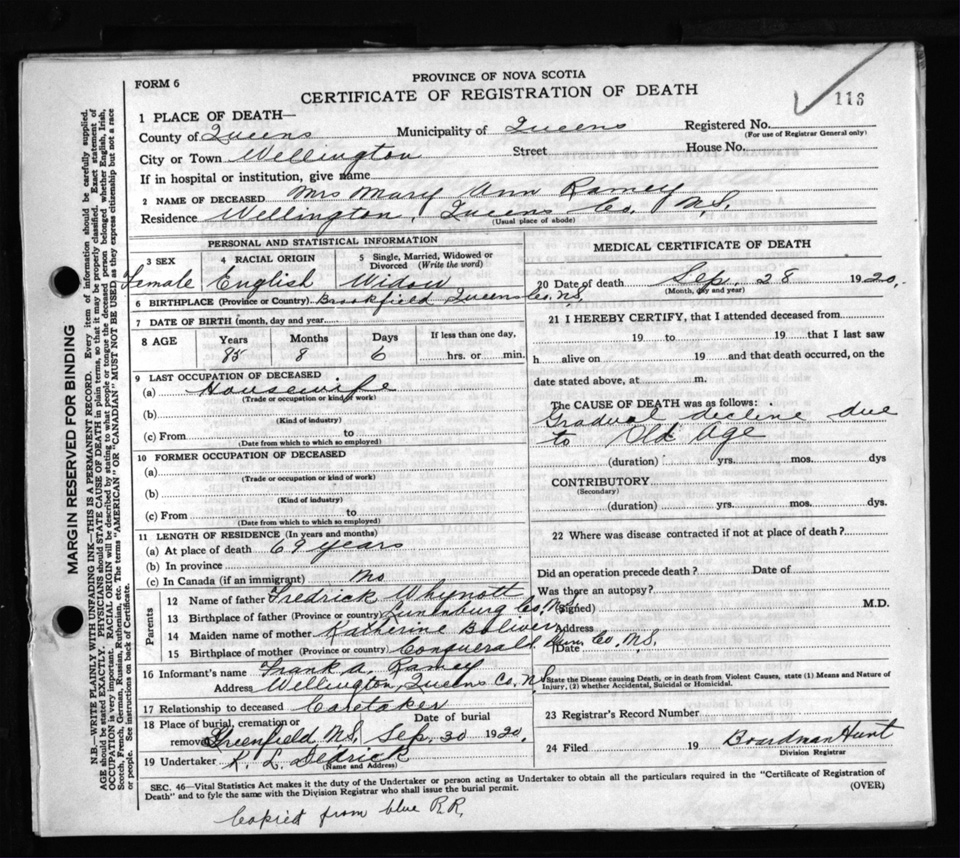 FORM 6
PROVINCE OF NOVA SCOTIA
CERTIFICATE OF REGISTRATION OF DEATH
113
1 PLACE OF DEATH—
County of Queens Municipality of Queens Registered No.
(For use of Registrar General only)
City or Town Wellington Street House No.
If in hospital or institution, give name
2 NAME OF DECEASED Mrs Mary Ann Ramey
Residence Wellington, Queens Co, N.S,
(Usual place of abode)
PERSONAL AND STATISTICAL INFORMATION
3 SEX 4 RACIAL ORIGIN 5 Single, Married, Widowed or Divorced (Write the word)
Female English Widow
6 BIRTHPLACE (Province or Country) Brookfield Queens Co, N.S,
7 DATE OF BIRTH (month, day and year)
8 AGE Years Months Days If less than one day,
85 8 6 hrs. or min.
9 LAST OCCUPATION OF DECEASED
(a) Housewife
(Trade or occupation or kind of work)
(b)
(Kind of industry)
(c) From to
(Date from which to which so employed)
10 FORMER OCCUPATION OF DECEASED
(a)
(Trade or occupation or kind of work)
(b)
(Kind of industry)
(c) From to
(Date from which to which so employed)
11 LENGTH OF RESIDENCE (In years and months)
(a) At place of death 69 years
(b) In province
(c) In Canada (if an immigrant) No
Parents
12 Name of father Fredrick Whynott
13 Birthplace of father (Province or country) Lunenburg Co, N.S
14 Maiden name of mother Katherine Boliver
15 Birthplace of mother (Province or country) Conquerall Lun, Co, N.S,
16 Informant's name Frank A. Ramey
Address Wellington, Queens Co, N.S
17 Relationship to deceased Caretaker
18 Place of burial, cremation or removal Date of burial
Greenfield N.S, Sep, 30 1920,
19 Undertaker K. L. Dedrick
(Name and Address)
MEDICAL CERTIFICATE OF DEATH
20 Date of death Sep, 28 1920,
(Month, day and year)
21 I HEREBY CERTIFY, that I attended deceased from
19 to 19 that I last saw
h alive on 19 and that death occurred, on the
date stated above, at m.
The CAUSE OF DEATH was as follows:
Gradual decline due
to Old Age
(duration) yrs. mos. dys
CONTRIBUTORY
(Secondary)
(duration) yrs. mos. dys.
22 Where was disease contracted if not at place of death?
Did an operation precede death? Date of
Was there an autopsy?
(Signed) M.D.
Address
Date
State the Disease causing Death, or in death from Violent Causes, state (1) Means and Nature of
Injury, (2) whether Accidental, Suicidal or Homicidal.
23 Registrar's Record Number
24 Filed 19 Boardman Hunt
Division Registrar
SEC. 46—Vital Statistics Act makes it the duty of the Undertaker or person acting as Undertaker to obtain all the particulars required in the "Certificate of Registration of
Death" and to fyle the same with the Division Registrar who shall issue the burial permit. (OVER)
Copied from blue R.R,
MARGIN RESERVED FOR BINDING
N.B.—WRITE PLAINLY WITH UNFADING INK—THIS IS A PERMANENT RECORD. Every item of information should be carefully supplied.
AGE should be stated EXACTLY. PHYSICIANS should STATE CAUSE OF DEATH in plain terms, so that it may be properly classified. Exact statement of
OCCUPATION is very important. RACIAL ORIGIN will be described by stating to what people or tongue the deceased person belonged whether English, Irish,
Scotch, French, German, Russian, Ruthenian, etc. The terms "AMERICAN" or "CANADIAN" MUST NOT BE USED as they express citizenship but not a race
or people. See instructions on back of Certificate.